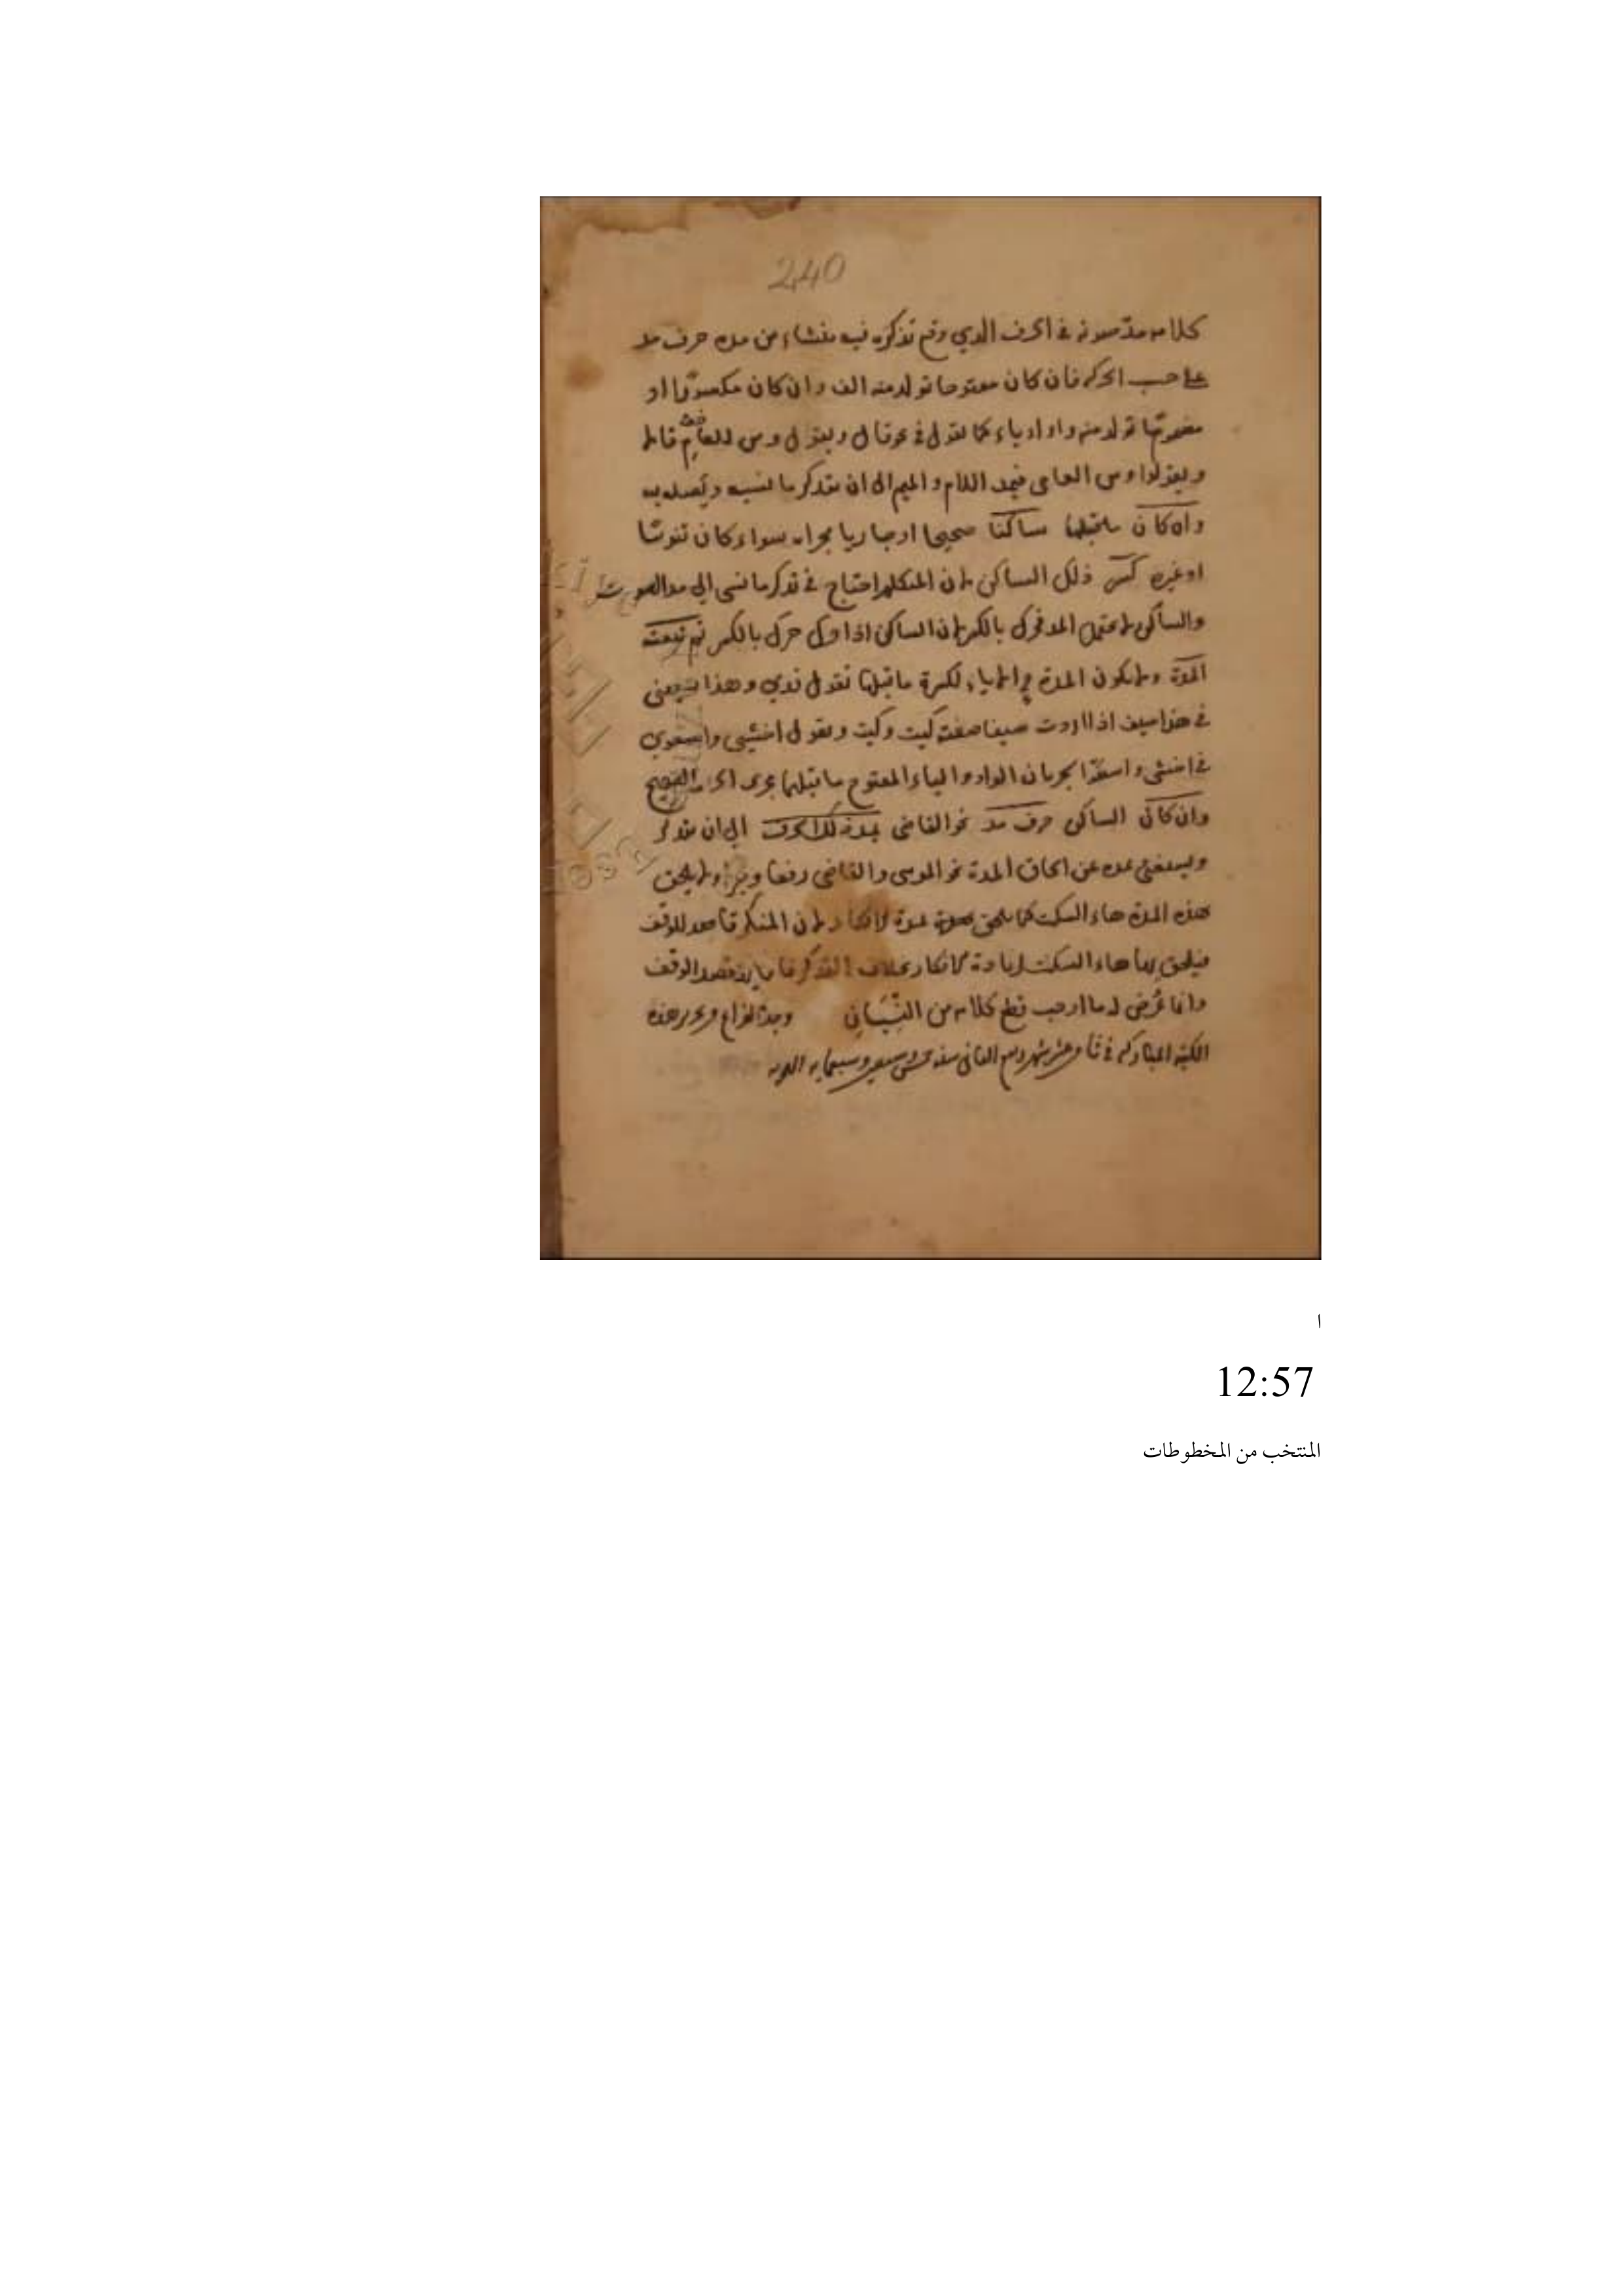 240
كلامه مدّ صوته في الحرف الذي وقع تذكره فيه فنشاء من مده حرف مد
على حسب الحركة فان كان مفتوحا تولد منه الف وان كان مكسورًا او
مضمومًا تولد منه واو او ياء كما تقول في نحو قال ويقول ومن العام قالا
ويقولوا ومن العامي فيمد اللام والميم الى ان يتذكر ما نسيه ويصله به
وان كان ما قبلها ساكنا صحيحا او جاريا مجراه سواء كان تنوينا
او غيره كسر ذلك الساكن لان المتكلم احتاج في تذكر ما نسي الى مد الصوت
والساكن لا يحتمل المد فحرك بالكسر لان الساكن اذا حرك حرك بالكسر ثم تبعته
المدة ولا يكون المدة الا ياء لكسرة ما قبلها تقول قدي وهذا سيفني
في هذا سيف اذا اردت سيفا صفته كيت وكيت وتقول اخشيي واسعوي
في اخشى واسعوا لجريان الواو والياء المفتوح ما قبلهما مجرى الحرف الصحيح
وان كان الساكن حرف مد نحو القاضي يمد ذلك الحرف الى ان يتذكر
ويستغنى بمده عن الحاق المدة نحو الموسى والقاضي رفعا وجرا ولا يلحق
هذه المدة هاء السكت كما يلحق مدة الانكار لان المنكر قاصد للوقف
فيلحق بها هاء السكت زيادة للانكار بخلاف التذكر فانه لا يقصد الوقف
وانما عُرض له ما اوجب قطع كلامه من النِّسْيَانِ وجد الفراغ من تحرير هذه
الكتبة المباركة في ثامن عشر شهر ربيع الثاني سنة خمس وسبعين وسبعمايه
ا
12:57
المنتخب من المخطوطات